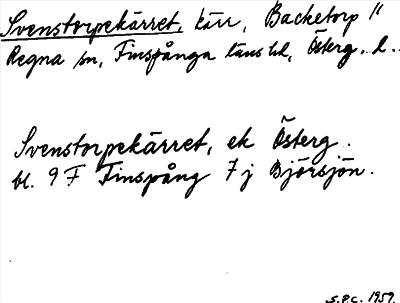 Svenstorpekärret, kärr, Backetorp "
Regna sn, Finspånga läns hd, Österg. l.
Svenstorpekärret, ek Österg.
bl. 9 F Finspång 7 j Björsjön.
S.P.C. 1959.